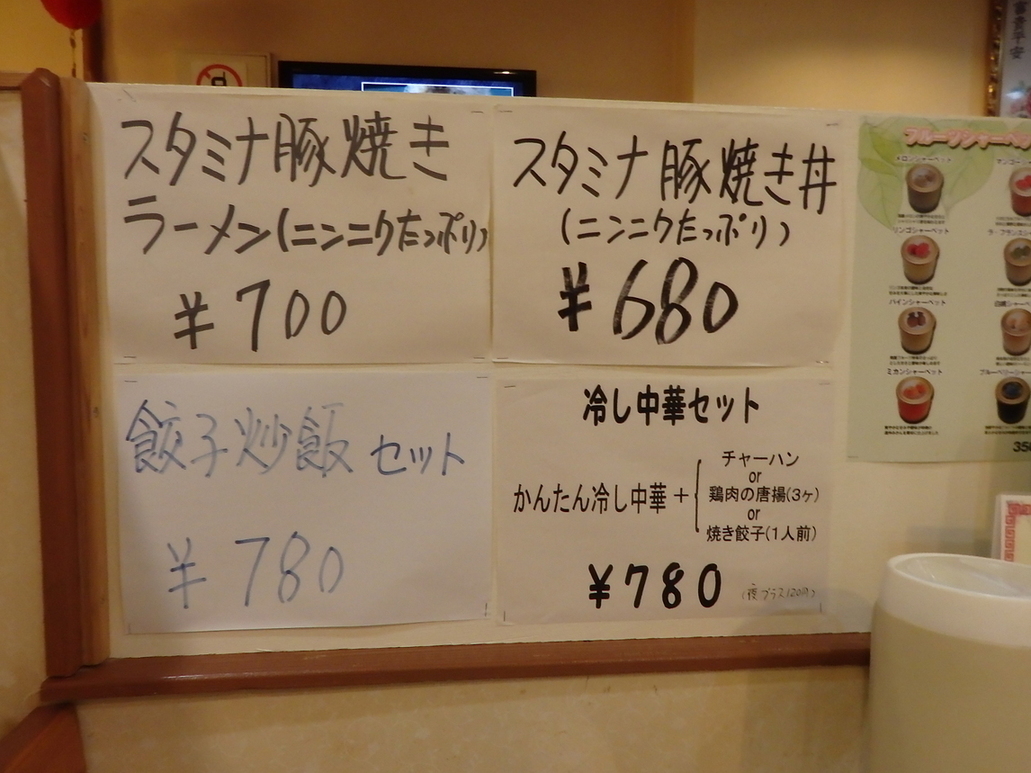 スタミナ豚焼き
ラーメン(ニンニクたっぷり)
¥700
スタミナ豚焼き丼
(ニンニクたっぷり)
¥680
餃子炒飯セット
¥780
冷し中華セット
かんたん冷し中華+
チャーハン
or
鶏肉の唐揚(3ヶ)
or
焼き餃子(1人前)
¥780
(夜プラス120円)
フルーツシャーベ
メロンシャーベット
マンゴー
リンゴシャーベット
ラ・フランス
パインシャーベット
白桃シャー
ミカンシャーベット
ブルーベリーシャー
350
富貴平安